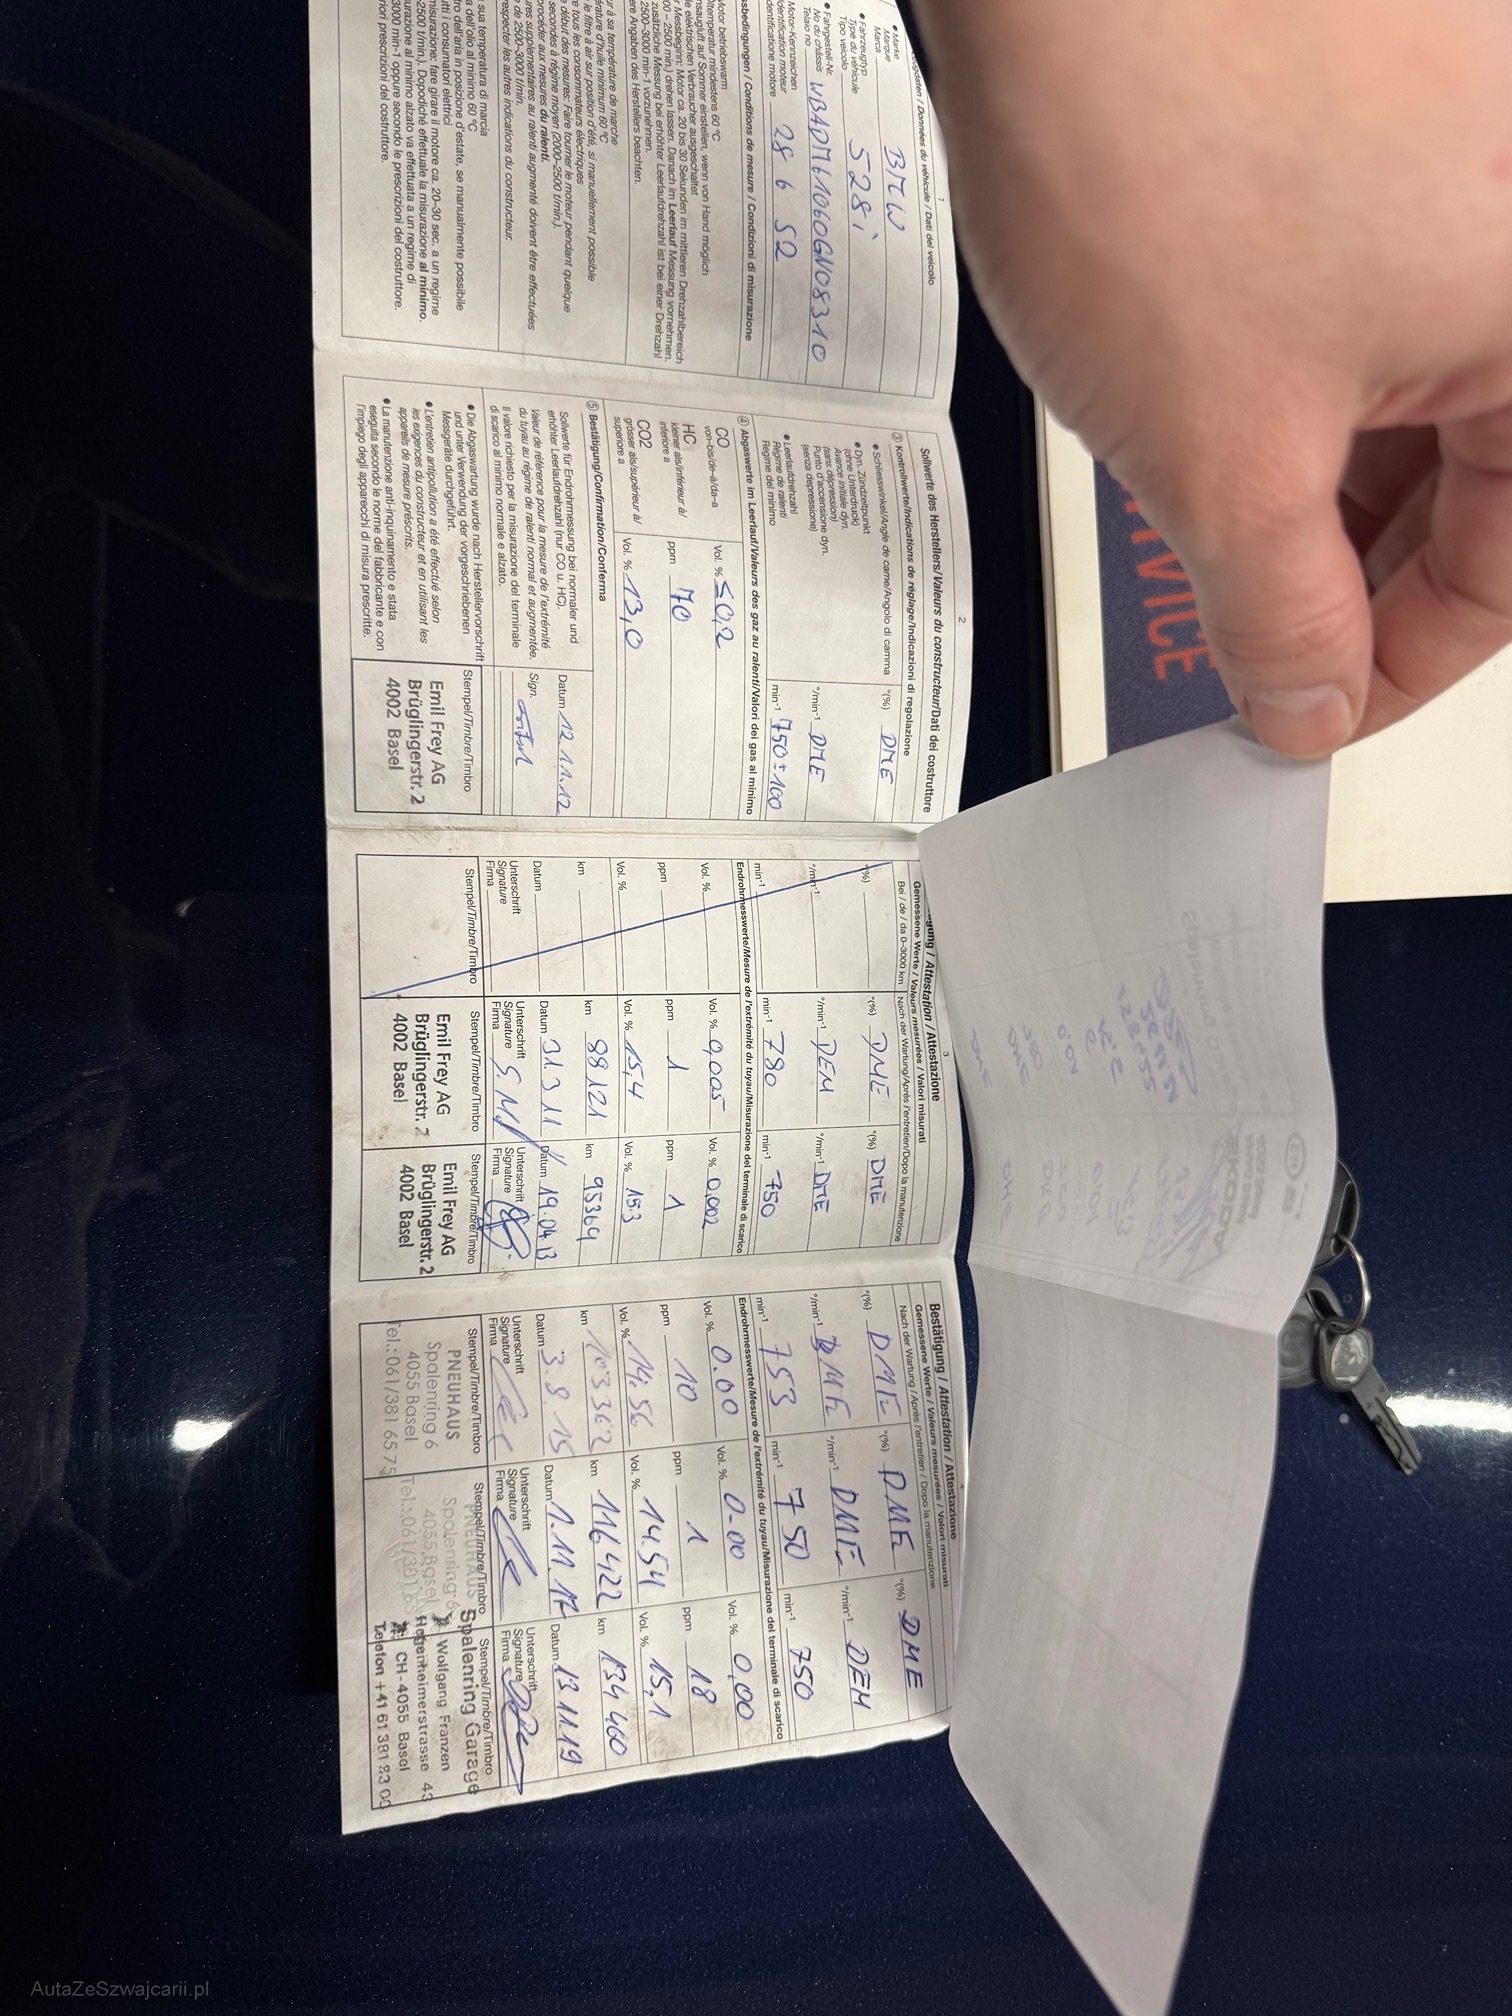 1
/ Données du véhicule / Dati del veicolo
● Marke
Marque
Marca
BMW
● Fahrzeugtyp
Type du véhicule
Tipo veicolo
528i
● Fahrgestell-Nr.
No du châssis
Telaio no
WBADM61060GN08310
Motor-Kennzeichen
Identification moteur
Identificazione motore
28 6 S2
/ Conditions de mesure / Condizioni di misurazione
Motor betriebswarm
Öltemperatur mindestens 60 °C
Ansaugluft auf Sommer einstellen, wenn von Hand möglich
elektrischen Verbraucher ausgeschaltet
Messbeginn: Motor ca. 20 bis 30 Sekunden im mittleren Drehzahlbereich
– 2500 min.) drehen lassen. Danach im Leerlauf Messung vornehmen.
zusätzliche Messung bei erhöhter Leerlaufdrehzahl ist bei einer Drehzahl
2500-3000 min-1 vorzunehmen.
Angaben des Herstellers beachten.
à sa température de marche
d'huile minimum 60 °C
le filtre à air sur position d'été, si manuellement possible
tous les consommateurs électriques
début des mesures: Faire tourner le moteur pendant quelque
secondes à régime moyen (2000-2500 t/min.).
procéder aux mesures du ralenti.
supplémentaires au ralenti augmenté doivent être effectuées
de 2500-3000 t/min.
respecter les autres indications du constructeur.
sua temperatura di marcia
dell'olio al minimo 60 °C
dell'aria in posizione d'estate, se manualmente possibile
i consumatori elettrici
misurazione: fare girare il motore ca. 20-30 sec. a un regime
-2500 t/min.). Dopodiché effettuale la misurazione al minimo.
al minimo alzato va effettuata a un regime di
3000 min-1 oppure secondo le prescrizioni del costruttore.
prescrizioni del costruttore.
2
Sollwerte des Herstellers/Valeurs du constructeur/Dati dei costruttore
③ Kontrollwerte/Indications de réglage/Indicazioni di regolazione
● Schliesswinkel/Angle de came/Angolo di camma °(%) DME
● Dyn. Zündzeitpunkt
(ohne Unterdruck)
Avance initiale dyn.
(sans dépression)
Punto d'accensione dyn.
(senza depressione)
°/min-1 DME
● Leerlaufdrehzahl
Régime de ralenti
Regime del minimo
min-1 750±100
④ Abgaswerte im Leerlauf/Valeurs des gaz au ralenti/Valori dei gas al minimo
CO
von–bis/de–à/da–a
Vol. % ≤0,2
HC
kleiner als/inférieur à/
inferiore a
ppm 70
CO2
grösser als/supérieur à/
superiore a
Vol. % 13,0
⑤ Bestätigung/Confirmation/Conferma
Sollwerte für Endrohrmessung bei normaler und
erhöhter Leerlaufdrehzahl (nur CO u. HC).
Valeur de référence pour la mesure de l'extrémité
du tuyau au régime de ralenti normal et augmentée.
Il valore richiesto per la misurazione del terminale
di scarico al minimo normale e alzato.
Datum 12.11.12
Sign.
● Die Abgaswartung wurde nach Herstellervorschrift
und unter Verwendung der vorgeschriebenen
Messgeräte durchgeführt.
● L'entretien antipollution a été effectué selon
les exigences du constructeur et en utilisant les
appareils de mesure préscrits.
● La manutenzione anti-inquinamento e stata
eseguita secondo le norme del fabbricante e con
l'impiego degli apparecchi di misura prescritte.
Stempel/Timbre/Timbro
Emil Frey AG
Brüglingerstr. 2
4002 Basel
3
/ Attestation / Attestazione
Gemessene Werte / Valeurs mesurées / Valori misurati
Bei / de / da 0-3000 km
Nach der Wartung/Après l'entretien/Dopo la manutenzione
°(%) DME °(%) DME
°/min-1 °/min-1 DEM °/min-1 DME
min-1 min-1 780 min-1 750
Endrohrmesswerte/Mesure de l'extrémité du tuyau/Misurazione del terminale di scarico
Vol. % Vol. % 0,005 Vol. % 0,002
ppm ppm 1 ppm 1
Vol. % Vol. % 15,4 Vol. % 15.3
km km 88121 km 95364
Datum Datum 31 3 11 Datum 19.04.13
Unterschrift
Signature
Firma
Unterschrift
Signature
Firma
Unterschrift
Signature
Firma
Stempel/Timbre/Timbro
Stempel/Timbre/Timbro
Emil Frey AG
Brüglingerstr. 2
4002 Basel
Stempel/Timbre/Timbro
Emil Frey AG
Brüglingerstr. 2
4002 Basel
4
Bestätigung / Attestation / Attestazione
Gemessene Werte / Valeurs mesurées / Valori misurati
Nach der Wartung / Après l'entretien / Dopo la manutenzione
°(%) DME °(%) DME °(%) DME
°/min-1 DME °/min-1 DME °/min-1 DEM
min-1 753 min-1 750 min-1 750
Endrohrmesswerte/Mesure de l'extrémité du tuyau/Misurazione del terminale di scarico
Vol. % 0.00 Vol. % 0.00 Vol. % 0,00
ppm 10 ppm 1 ppm 18
Vol. % 14.56 Vol. % 14.54 Vol. % 15,1
km 103362 km 116422 km 134400
Datum 3.8.15 Datum 1.11.17 Datum 13 11 19
Unterschrift
Signature
Firma
Unterschrift
Signature
Firma
Unterschrift
Signature
Firma
Stempel/Timbre/Timbro
PNEUHAUS
Spalenring 6
4055 Basel
Tel.: 061/381 65 75
Stempel/Timbre/Timbro
PNEUHAUS
Spalenring 6
4055 Basel
Stempel/Timbre/Timbro
Spalenring Garage
Wolfgang Franzen
Hegenheimerstrasse 43
CH-4055 Basel
Telefon +41 61 381 83 00
AutaZeSzwajcarii.pl